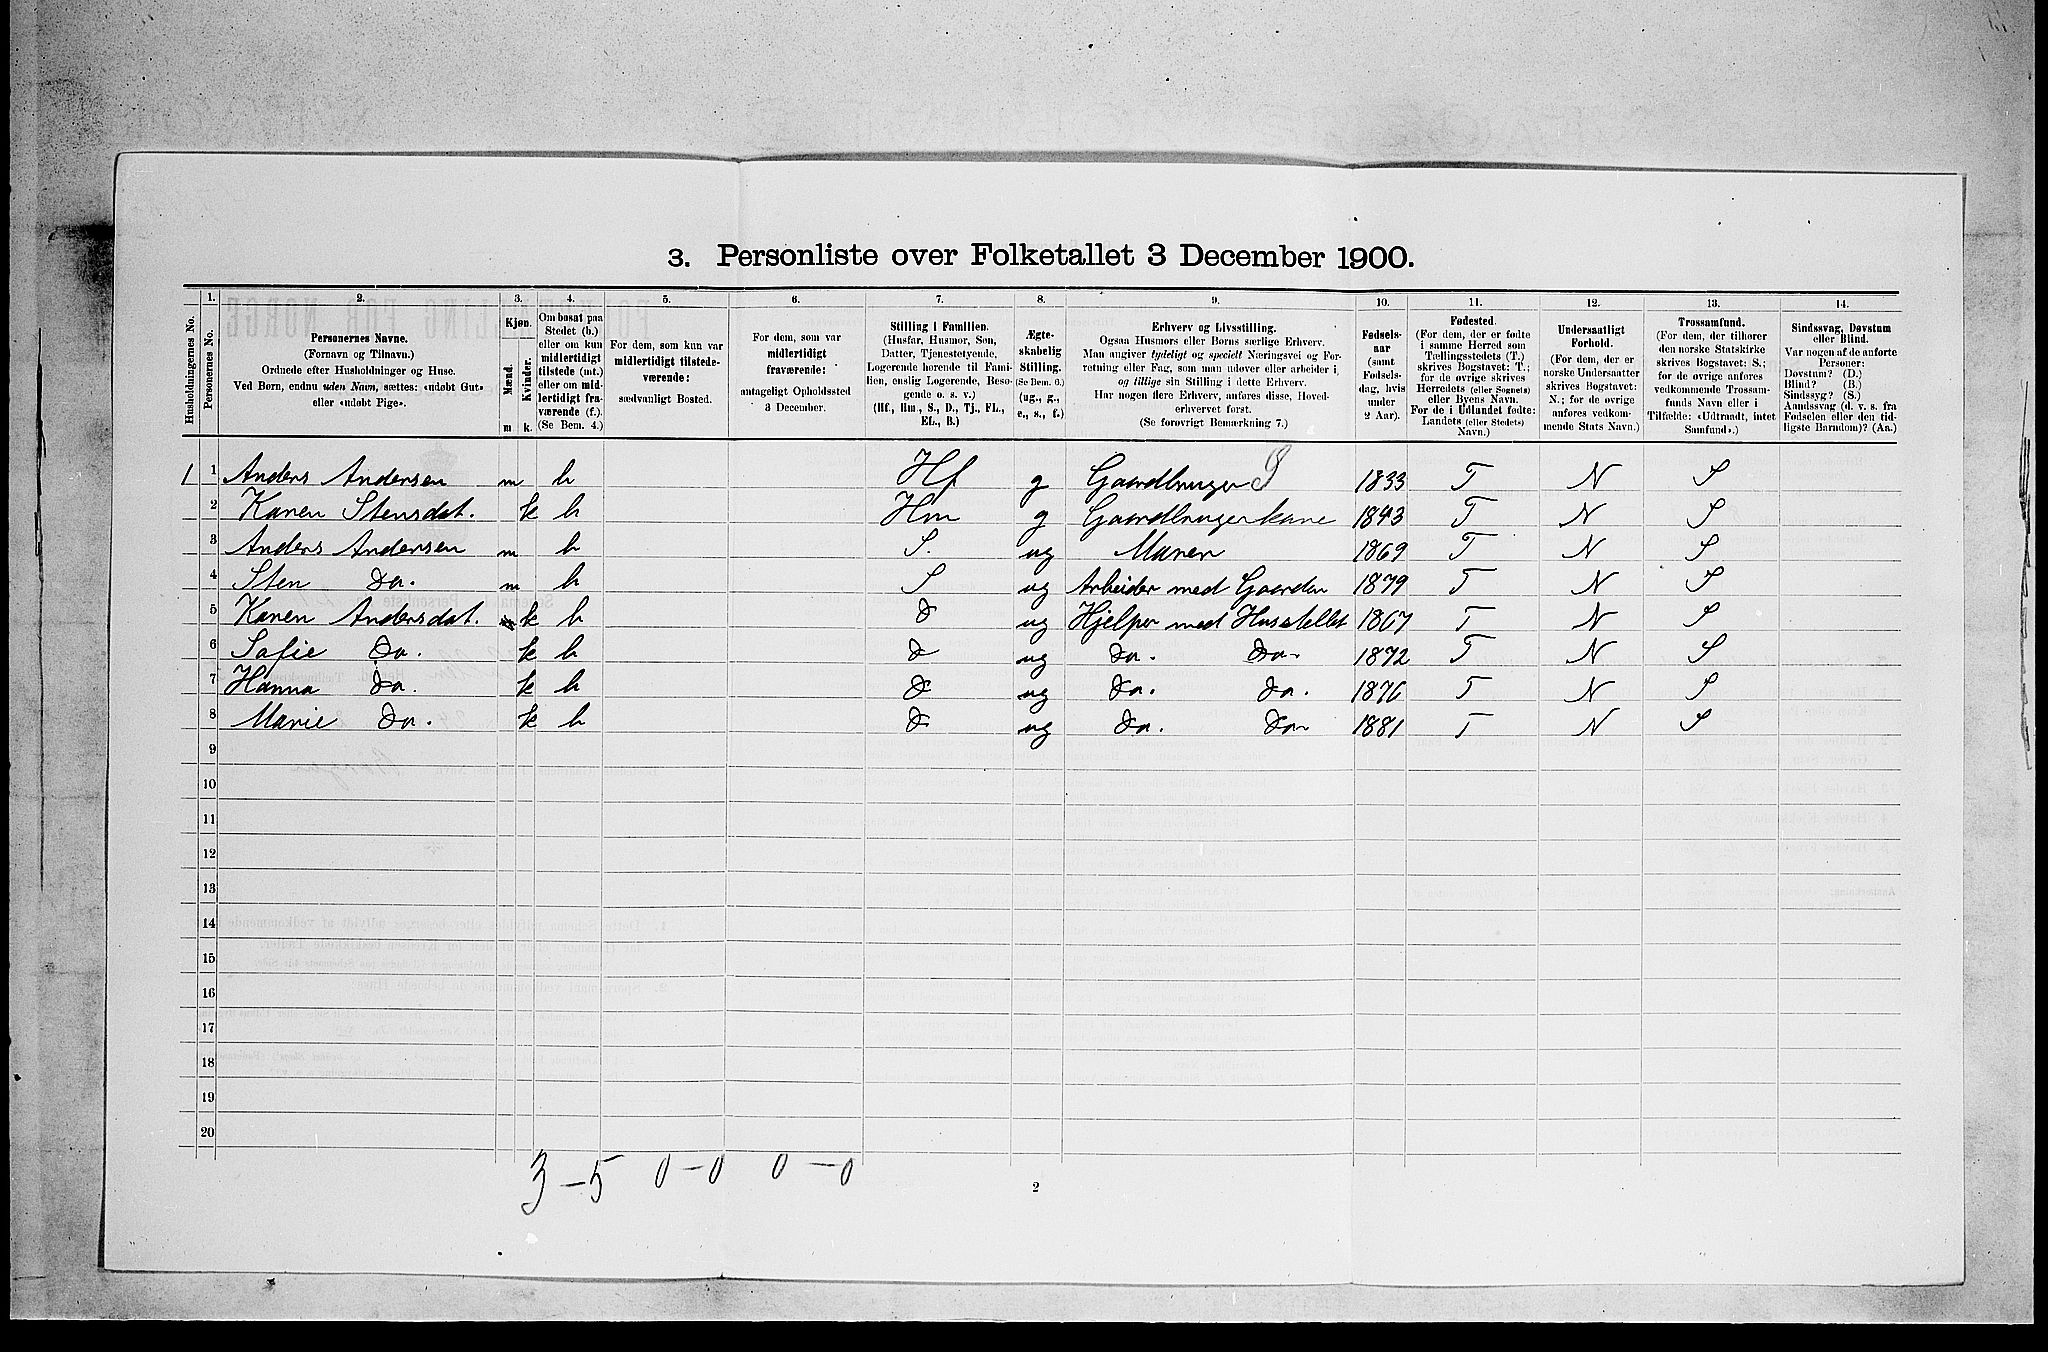 3. Personliste over Folketallet 3 December 1900.
1. 2. 3. 4. 5. 6. 7. 8. 9. 10. 11. 12. 13. 14.
Husholdningernes No.
Personernes No.
Personernes Navne.
(Fornavn og Tilnavn.)
Ordnede efter Husholdninger og Huse.
Ved Børn, endnu uden Navn, sættes: «udøbt Gut»
eller «udøbt Pige».
Kjøn.
Mænd.
Kvinder.
m k.
Om bosat paa
Stedet (b.)
eller om kun
midlertidigt
tilstede (mt.)
eller om mid-
lertidigt fra-
værende (f.)
(Se Bem. 4.)
For dem, som kun var
midlertidigt tilstede-
værende:
sædvanligt Bosted.
For dem, som var
midlertidigt
fraværende:
antageligt Opholdssted
3 December.
Stilling i Familien.
(Husfar, Husmor, Søn,
Datter, Tjenestetyende,
Logerende hørende til Fami-
lien, enslig Logerende, Besø-
gende o. s. v.)
(Hf., Hm., S., D., Tj., FL.,
EL., B.)
Ægte-
skabelig
Stilling.
(Se Bem. 6.)
(ug., g.,
e., s., f.)
Erhverv og Livsstilling.
Ogsaa Husmors eller Børns særlige Erhverv.
Man angiver tydeligt og specielt Næringsvei og For-
retning eller Fag, som man udøver eller arbeider i,
og tillige sin Stilling i dette Erhverv.
Har nogen flere Erhverv, anføres disse, Hoved-
erhvervet først.
(Se forøvrigt Bemærkning 7.)
Fødsels-
aar
(samt
Fødsels-
dag, hvis
under
2 Aar).
Fødested.
(For dem, der er fødte
i samme Herred som
Tællingsstedets (T.)
skrives Bogstavet: T.;
for de øvrige skrives
Herredets (eller Sognets)
eller Byens Navn.
For de i Udlandet fødte:
Landets (eller Stedets)
Navn.)
Undersaatligt
Forhold.
(For dem, der er
norske Undersaatter
skrives Bogstavet:
N.; for de øvrige
anføres vedkom-
mende Stats Navn.)
Trossamfund.
(For dem, der tilhører
den norske Statskirke
skrives Bogstavet: S.;
for de øvrige anføres
vedkommende Trossam-
funds Navn eller i
Tilfælde: «Udtraadt, intet
Samfund».)
Sindssvag, Døvstum
eller Blind.
Var nogen af de anførte
Personer:
Døvstum? (D.)
Blind? (B.)
Sindssyg? (S.)
Aandssvag (d. v. s. fra
Fødselen eller den tid-
ligste Barndom)? (Aa.)
1 1 Anders Andersen m b Hf g Gaardbruger S 1833 T N S
2 Karen Stensdat. k b Hm g Gaardbrugerkone 1843 T N S
3 Anders Andersen m b S. ug Murer 1869 T N S
4 Sten Do. m b S ug Arbeider med Gaarden 1879 T N S
5 Karen Andersdat. k b D ug Hjelper med Husstellet 1867 T N S
6 Sofie Do. k b D ug Do. Do. 1872 T N S
7 Hanna Do. k b D ug Do. Do. 1876 T N S
8 Marie Do. k b D ug Do. Do 1881 T N S
9
10
11
12
13
14
15
16
17
18
19
20
3 – 5 0 – 0 0 – 0
2